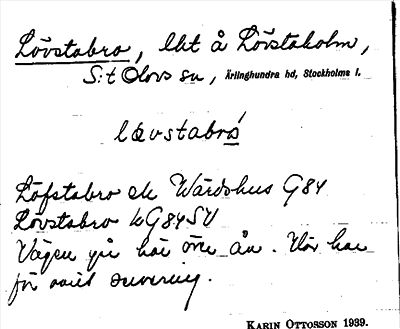 Lövstabro, lht å Lövstaholm,
S:t Olovs sn, Ärlinghundra hd, Stockholms l.
lœvstabró
Löfstabro ek Wärdshus G84
Lövstabro hG84SV
Vägen går här över ån. Här har
för varit servering.
KARIN OTTOSSON 1939.